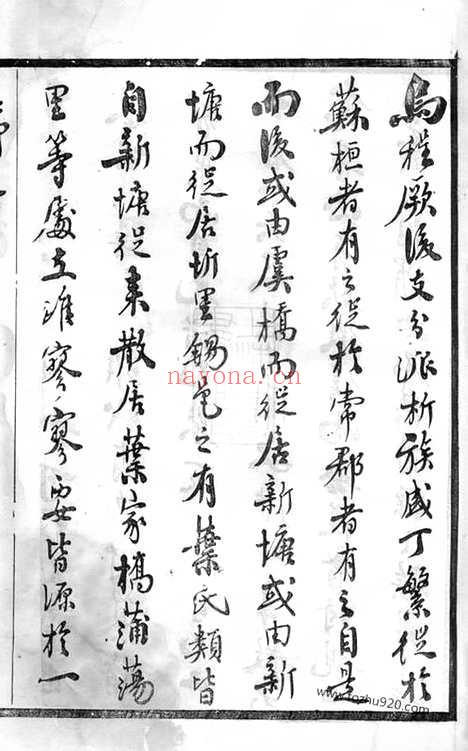 烏程厥後支分派析族盛丁繁從於
蘇桓者有之從於常郡者有之自是
而後或由虞橋而從居新塘或由新
塘而從居圻里錫邑之有葉氏類皆
自新塘從來散居葉家橋蒲蕩
里等處支雖寥寥要皆源於一
nayona.cn
www.fozhu920.com